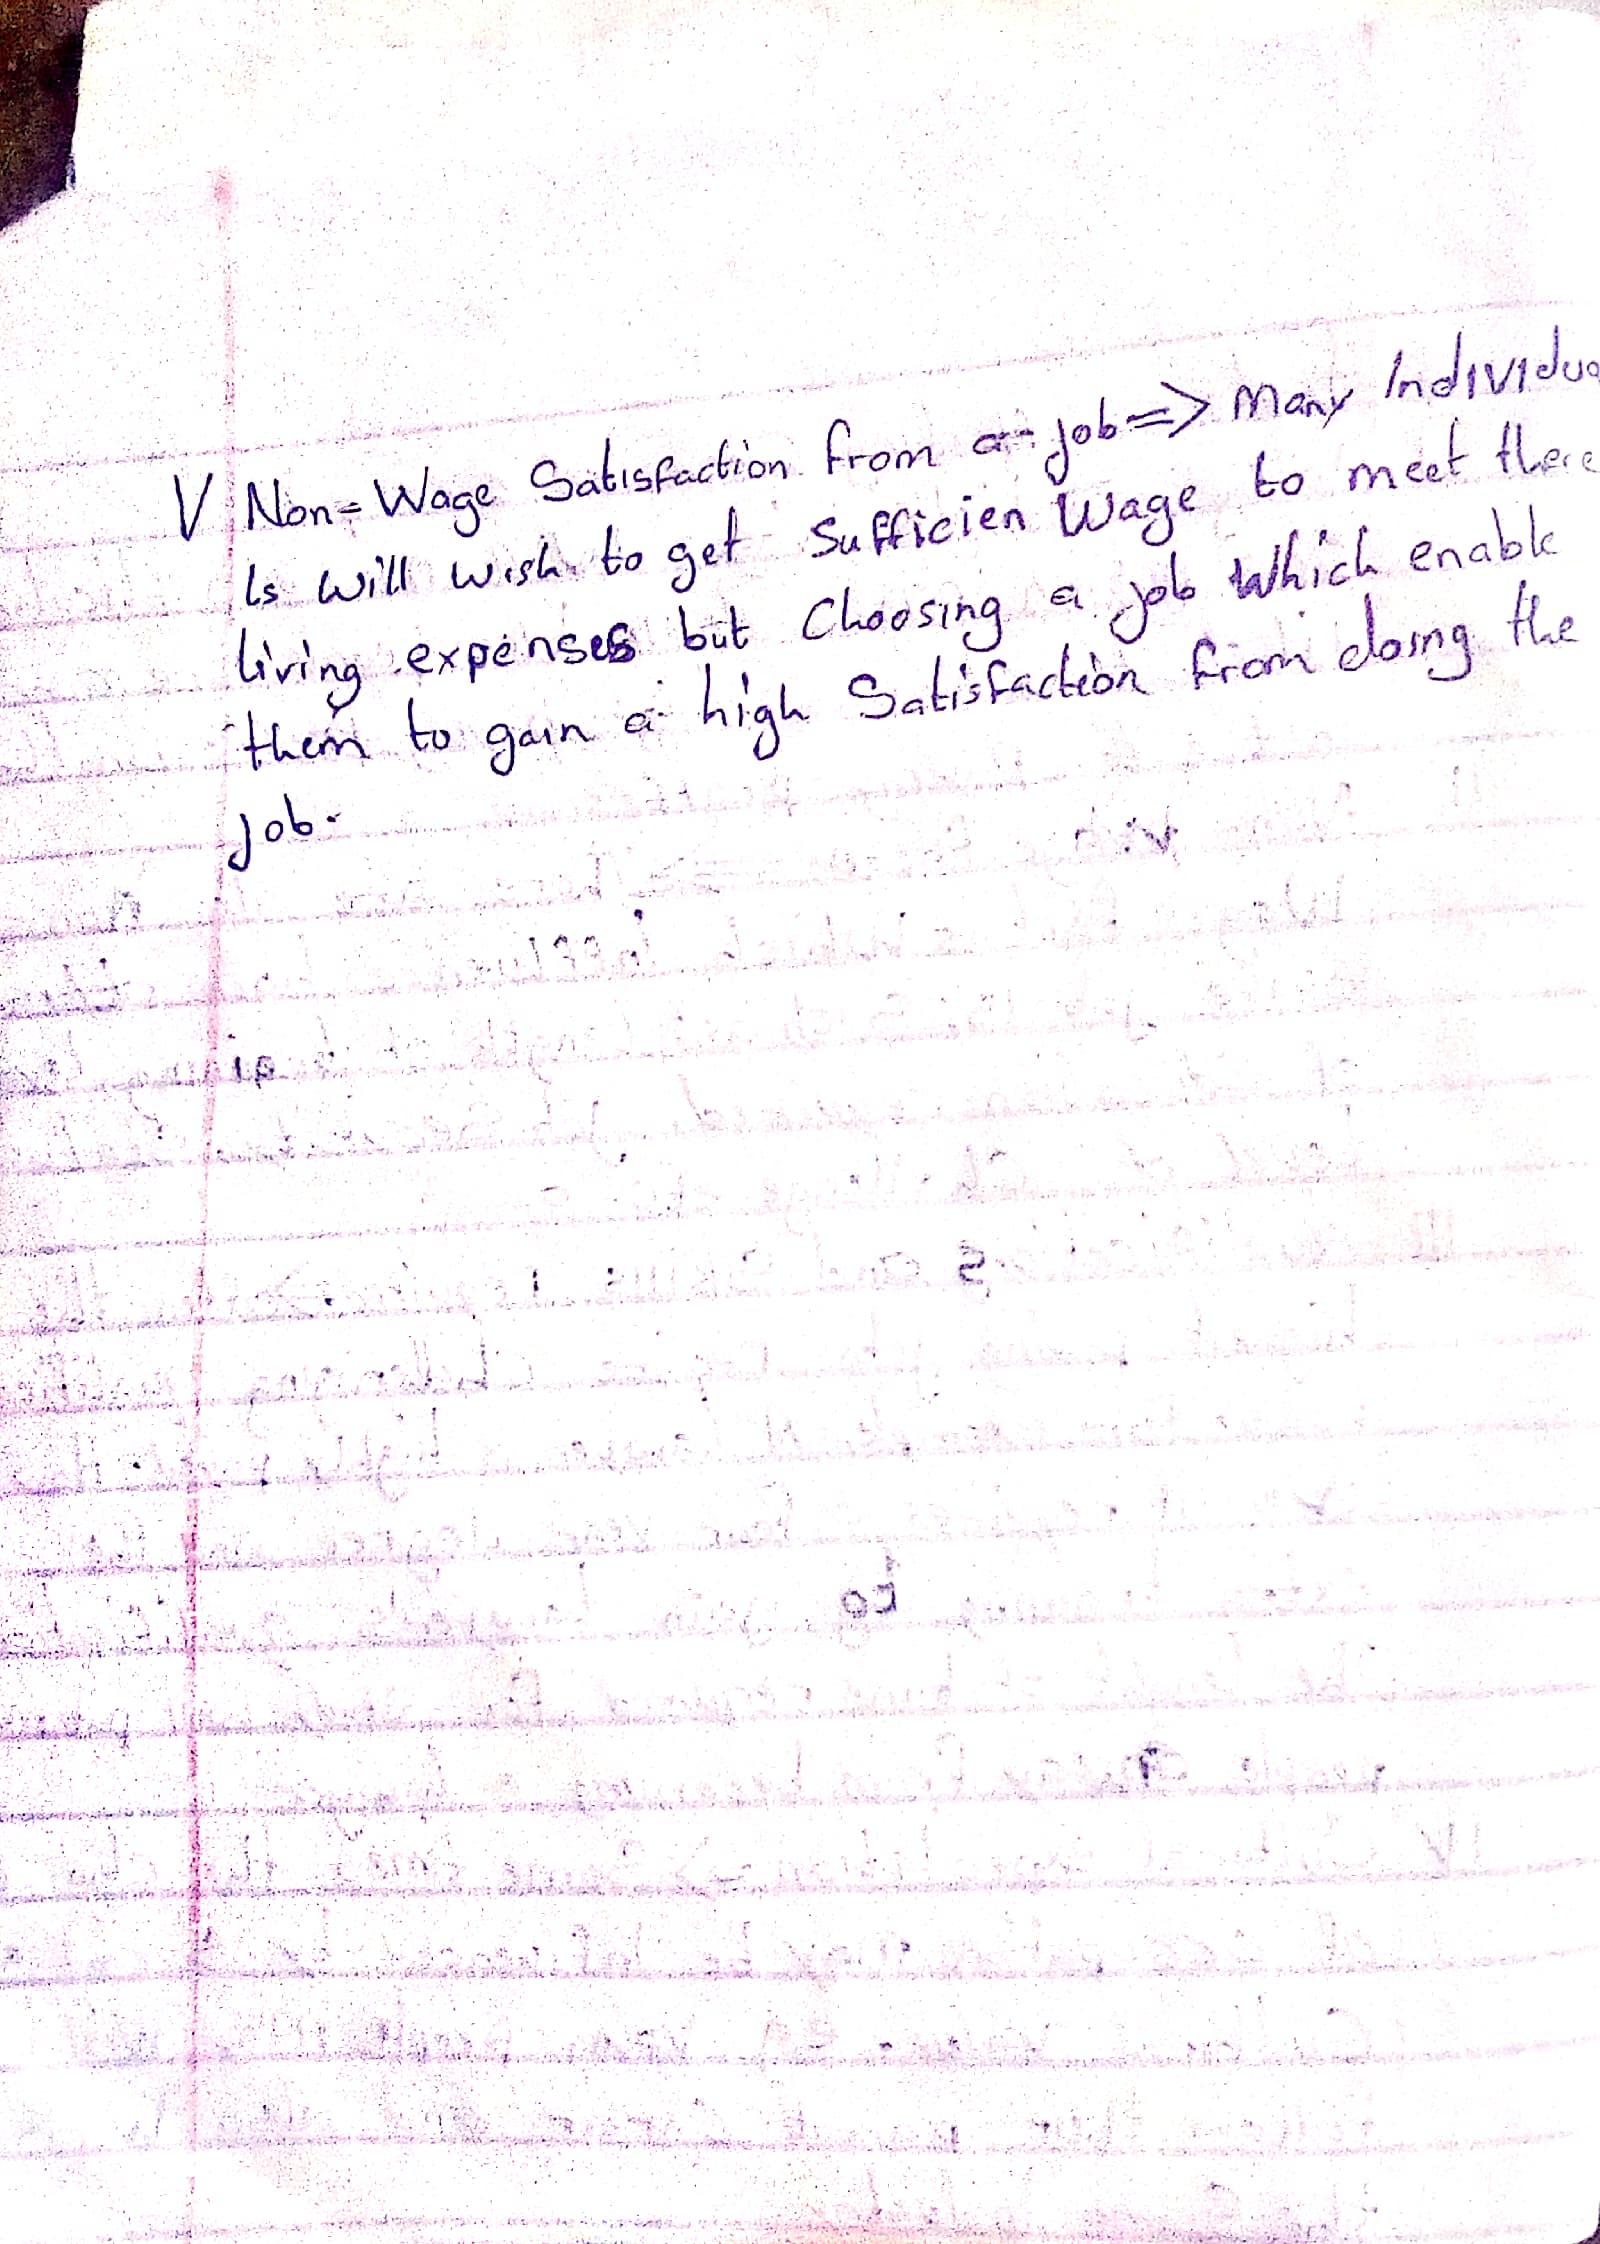 V Non-Wage Satisfaction from a job => Many Individua
ls Will Wish to get Sufficien Wage to meet there
living expenses but Choosing a job Which enable
them to gain a high Satisfaction from doing the
job.